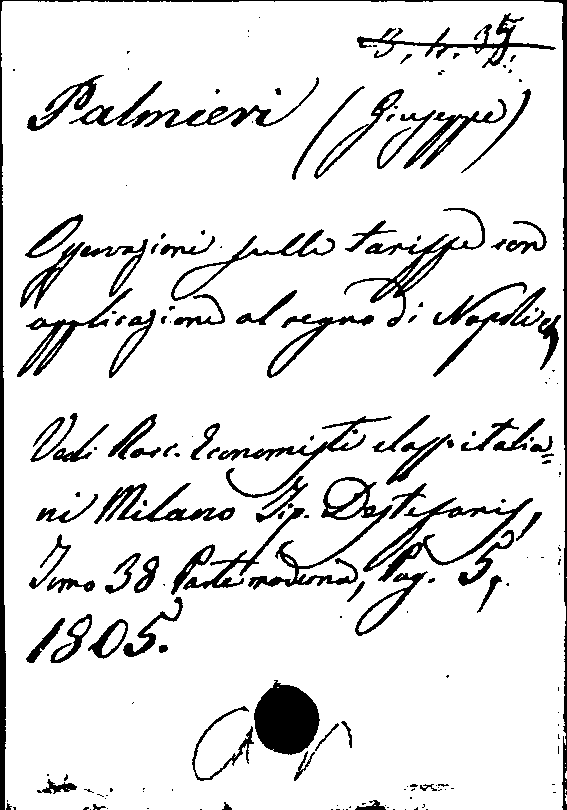 3, h. 35.
Palmieri (Giuseppe)
Osservazioni sulle tariffe con
applicazione al regno di Napoli,
Vedi Racc. Economisti class. italia=
ni Milano Tip. Destefanis,
Tomo 38 Parte moderna, Pag. 5,
1805.